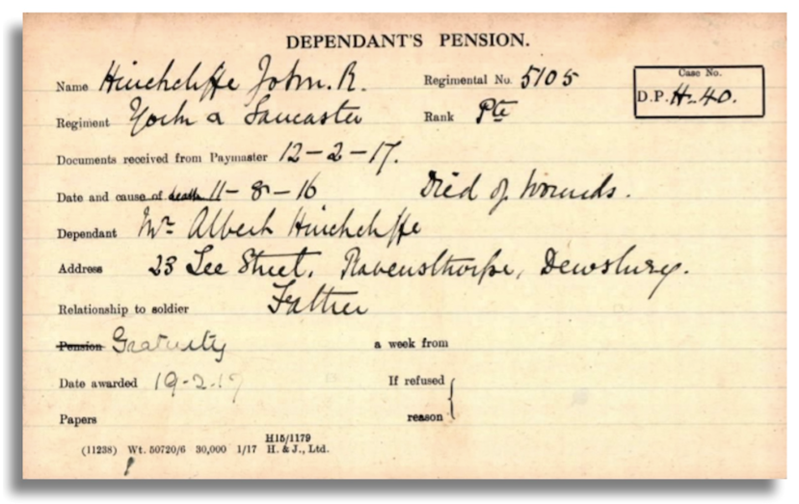 DEPENDANT'S PENSION.
Name Hinchcliffe John. R. Regimental No. 5105 Case No.
Regiment York & Lancaster Rank Pte D.P. H-40.
Documents received from Paymaster 12-2-17.
Date and cause of death 11-8-16 Died of Wounds.
Dependant Mr Albert Hinchcliffe
Address 23 Lee Street, Ravensthorpe, Dewsbury.
Relationship to soldier Father
Pension Gratuity a week from
Date awarded 19-2-17 If refused
Papers reason
H15/1179
(11238) Wt. 50720/6 30,000 1/17 H. & J., Ltd.